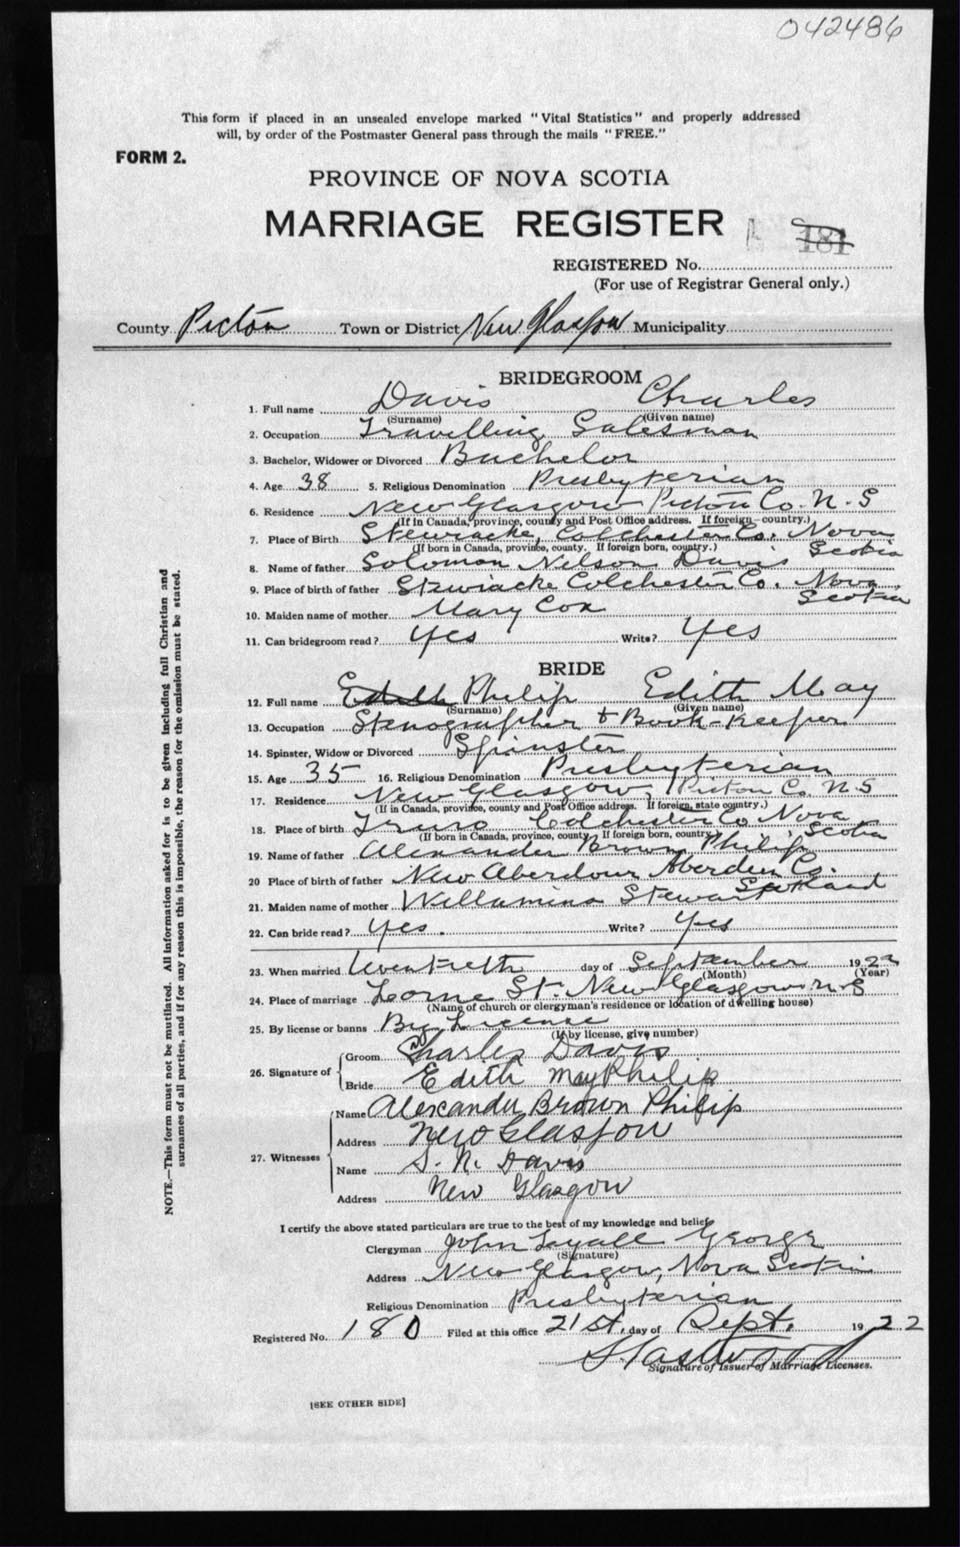 042486
This form if placed in an unsealed envelope marked "Vital Statistics" and properly addressed
will, by order of the Postmaster General pass through the mails "FREE."
FORM 2.
PROVINCE OF NOVA SCOTIA
MARRIAGE REGISTER
181
REGISTERED No.
(For use of Registrar General only.)
County Pictou Town or District New Glasgow Municipality
BRIDEGROOM
1. Full name Davis Charles
(Surname) (Given name)
2. Occupation Travelling Salesman
3. Bachelor, Widower or Divorced Bachelor
4. Age 38 5. Religious Denomination Presbyterian
6. Residence New Glasgow Pictou Co. N.S
(If in Canada, province, county and Post Office address. If foreign country.)
7. Place of Birth Stewiacke, Colchester Co. Nova
Scotia
(If born in Canada, province, county. If foreign born, country.)
8. Name of father Solomon Nelson Davis
9. Place of birth of father Stewiacke Colchester Co. Nova
Scotia
10. Maiden name of mother Mary Cox
11. Can bridegroom read? Yes Write? Yes
BRIDE
12. Full name Edith Philip Edith May
(Surname) (Given name)
13. Occupation Stenographer & Book-keeper
14. Spinster, Widow or Divorced Spinster
15. Age 35 16. Religious Denomination Presbyterian
17. Residence New Glasgow, Pictou Co. N.S
(If in Canada, province, county and Post Office address. If foreign, state country.)
18. Place of birth Truro Colchester Co Nova
Scotia
(If born in Canada, province, county. If foreign born, country)
19. Name of father Alexander Brown Philip
20 Place of birth of father New Aberdour Aberdeen Co.
Scotland
21. Maiden name of mother Willamina Stewart
22. Can bride read? Yes. Write? Yes
23. When married twentieth day of September 1922
(Month) (Year)
24. Place of marriage Lorne St. New Glasgow N.S
(Name of church or clergyman's residence or location of dwelling house)
25. By license or banns By License
(If by license, give number)
26. Signature of Groom Charles Davis
Bride Edith May Philip
27. Witnesses Name Alexander Brown Philip
Address New Glasgow
Name S. N. Davis
Address New Glasgow
I certify the above stated particulars are true to the best of my knowledge and belief,
Clergyman John Lyall George
(Signature)
Address New Glasgow, Nova Scotia
Religious Denomination Presbyterian
Registered No. 180 Filed at this office 21st. day of Sept. 1922
Signature of Issuer of Marriage Licenses.
[SEE OTHER SIDE]
NOTE.—This form must not be mutilated. All information asked for is to be given including full Christian and
surnames of all parties, and if for any reason this is impossible, the reason for the omission must be stated.